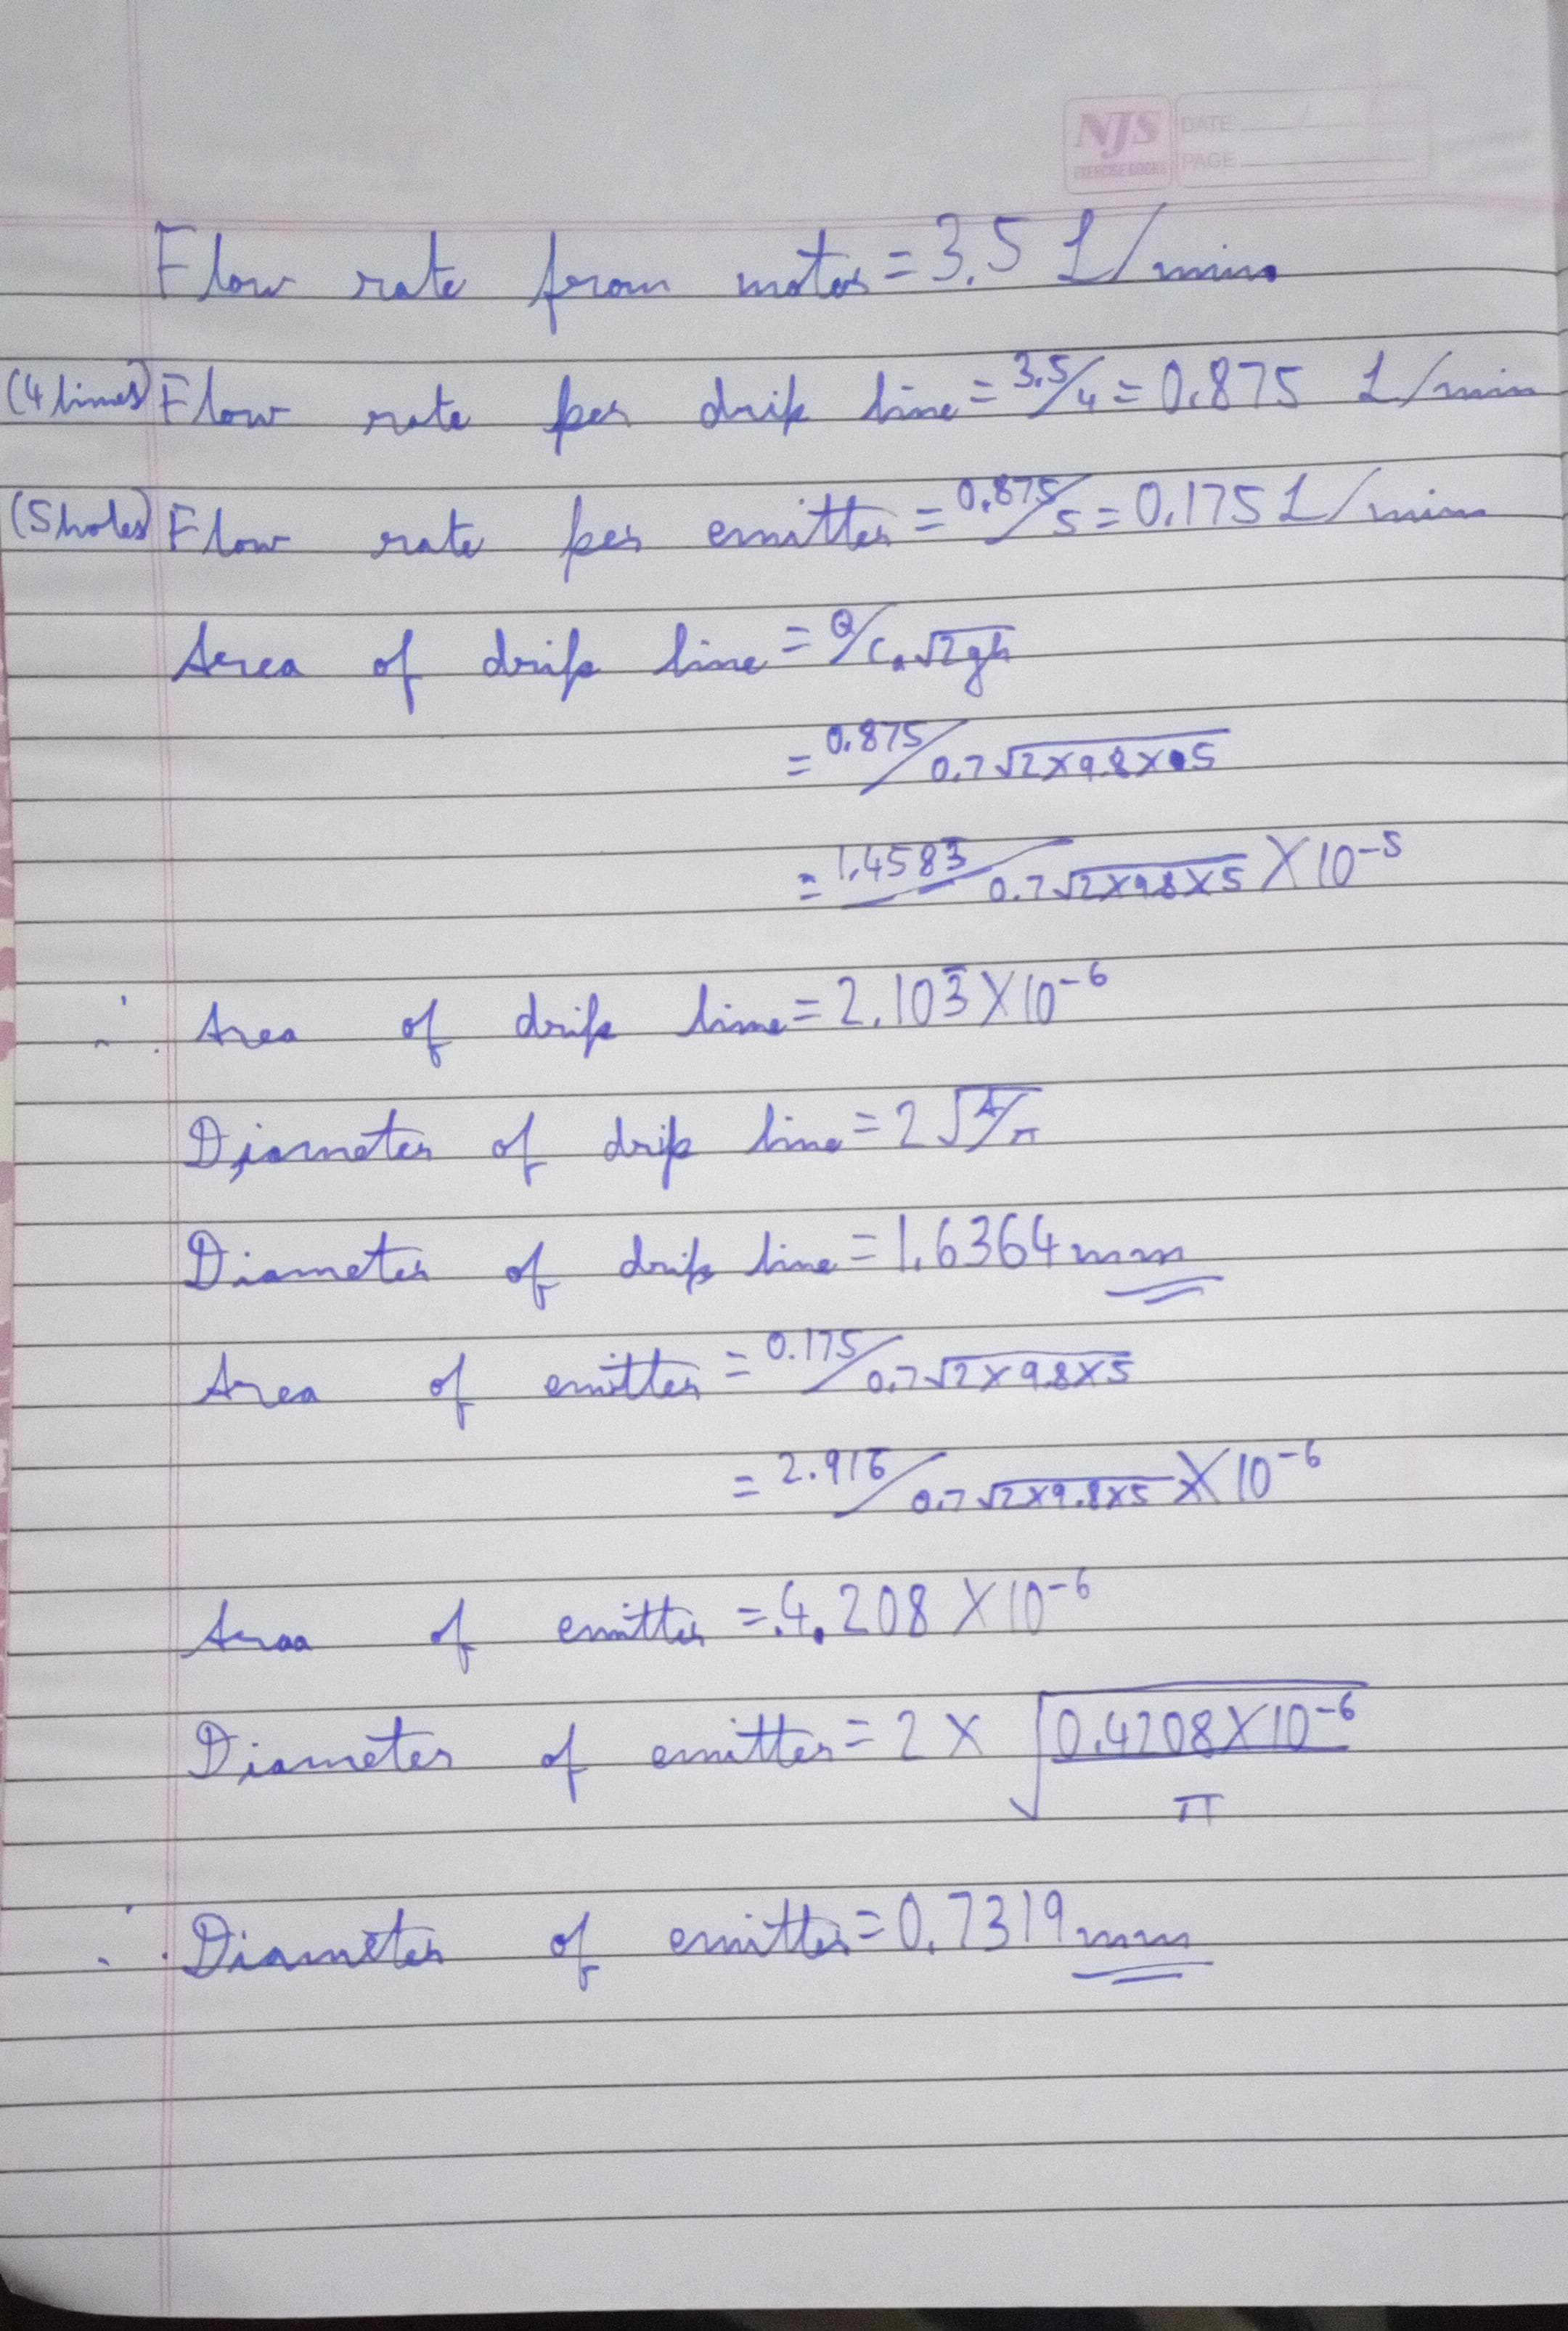 NJS
EXERCISE BOOKS
DATE
PAGE
Flow rate from motor = 3.5 L/min
(4 lines) Flow rate per drip line = 3.5/4 = 0.875 L/min
(5 holes) Flow rate per emitter = 0.875/5 = 0.175 L/min
Area of drip line = Q/C.√2gh
= 0.875/0.7√2×9.8×5
= 1.4583/0.7√2×9.8×5 × 10⁻⁵
∴ Area of drip line = 2.103 × 10⁻⁶
Diameter of drip line = 2√A/π
Diameter of drip line = 1.6364 mm
Area of emitter = 0.175/0.7√2×9.8×5
= 2.916/0.7√2×9.8×5 × 10⁻⁶
Area of emitter = .4.208 × 10⁻⁶
Diameter of emitter = 2 × √0.4208×10⁻⁶/π
∴ Diameter of emitter = 0.7319 mm